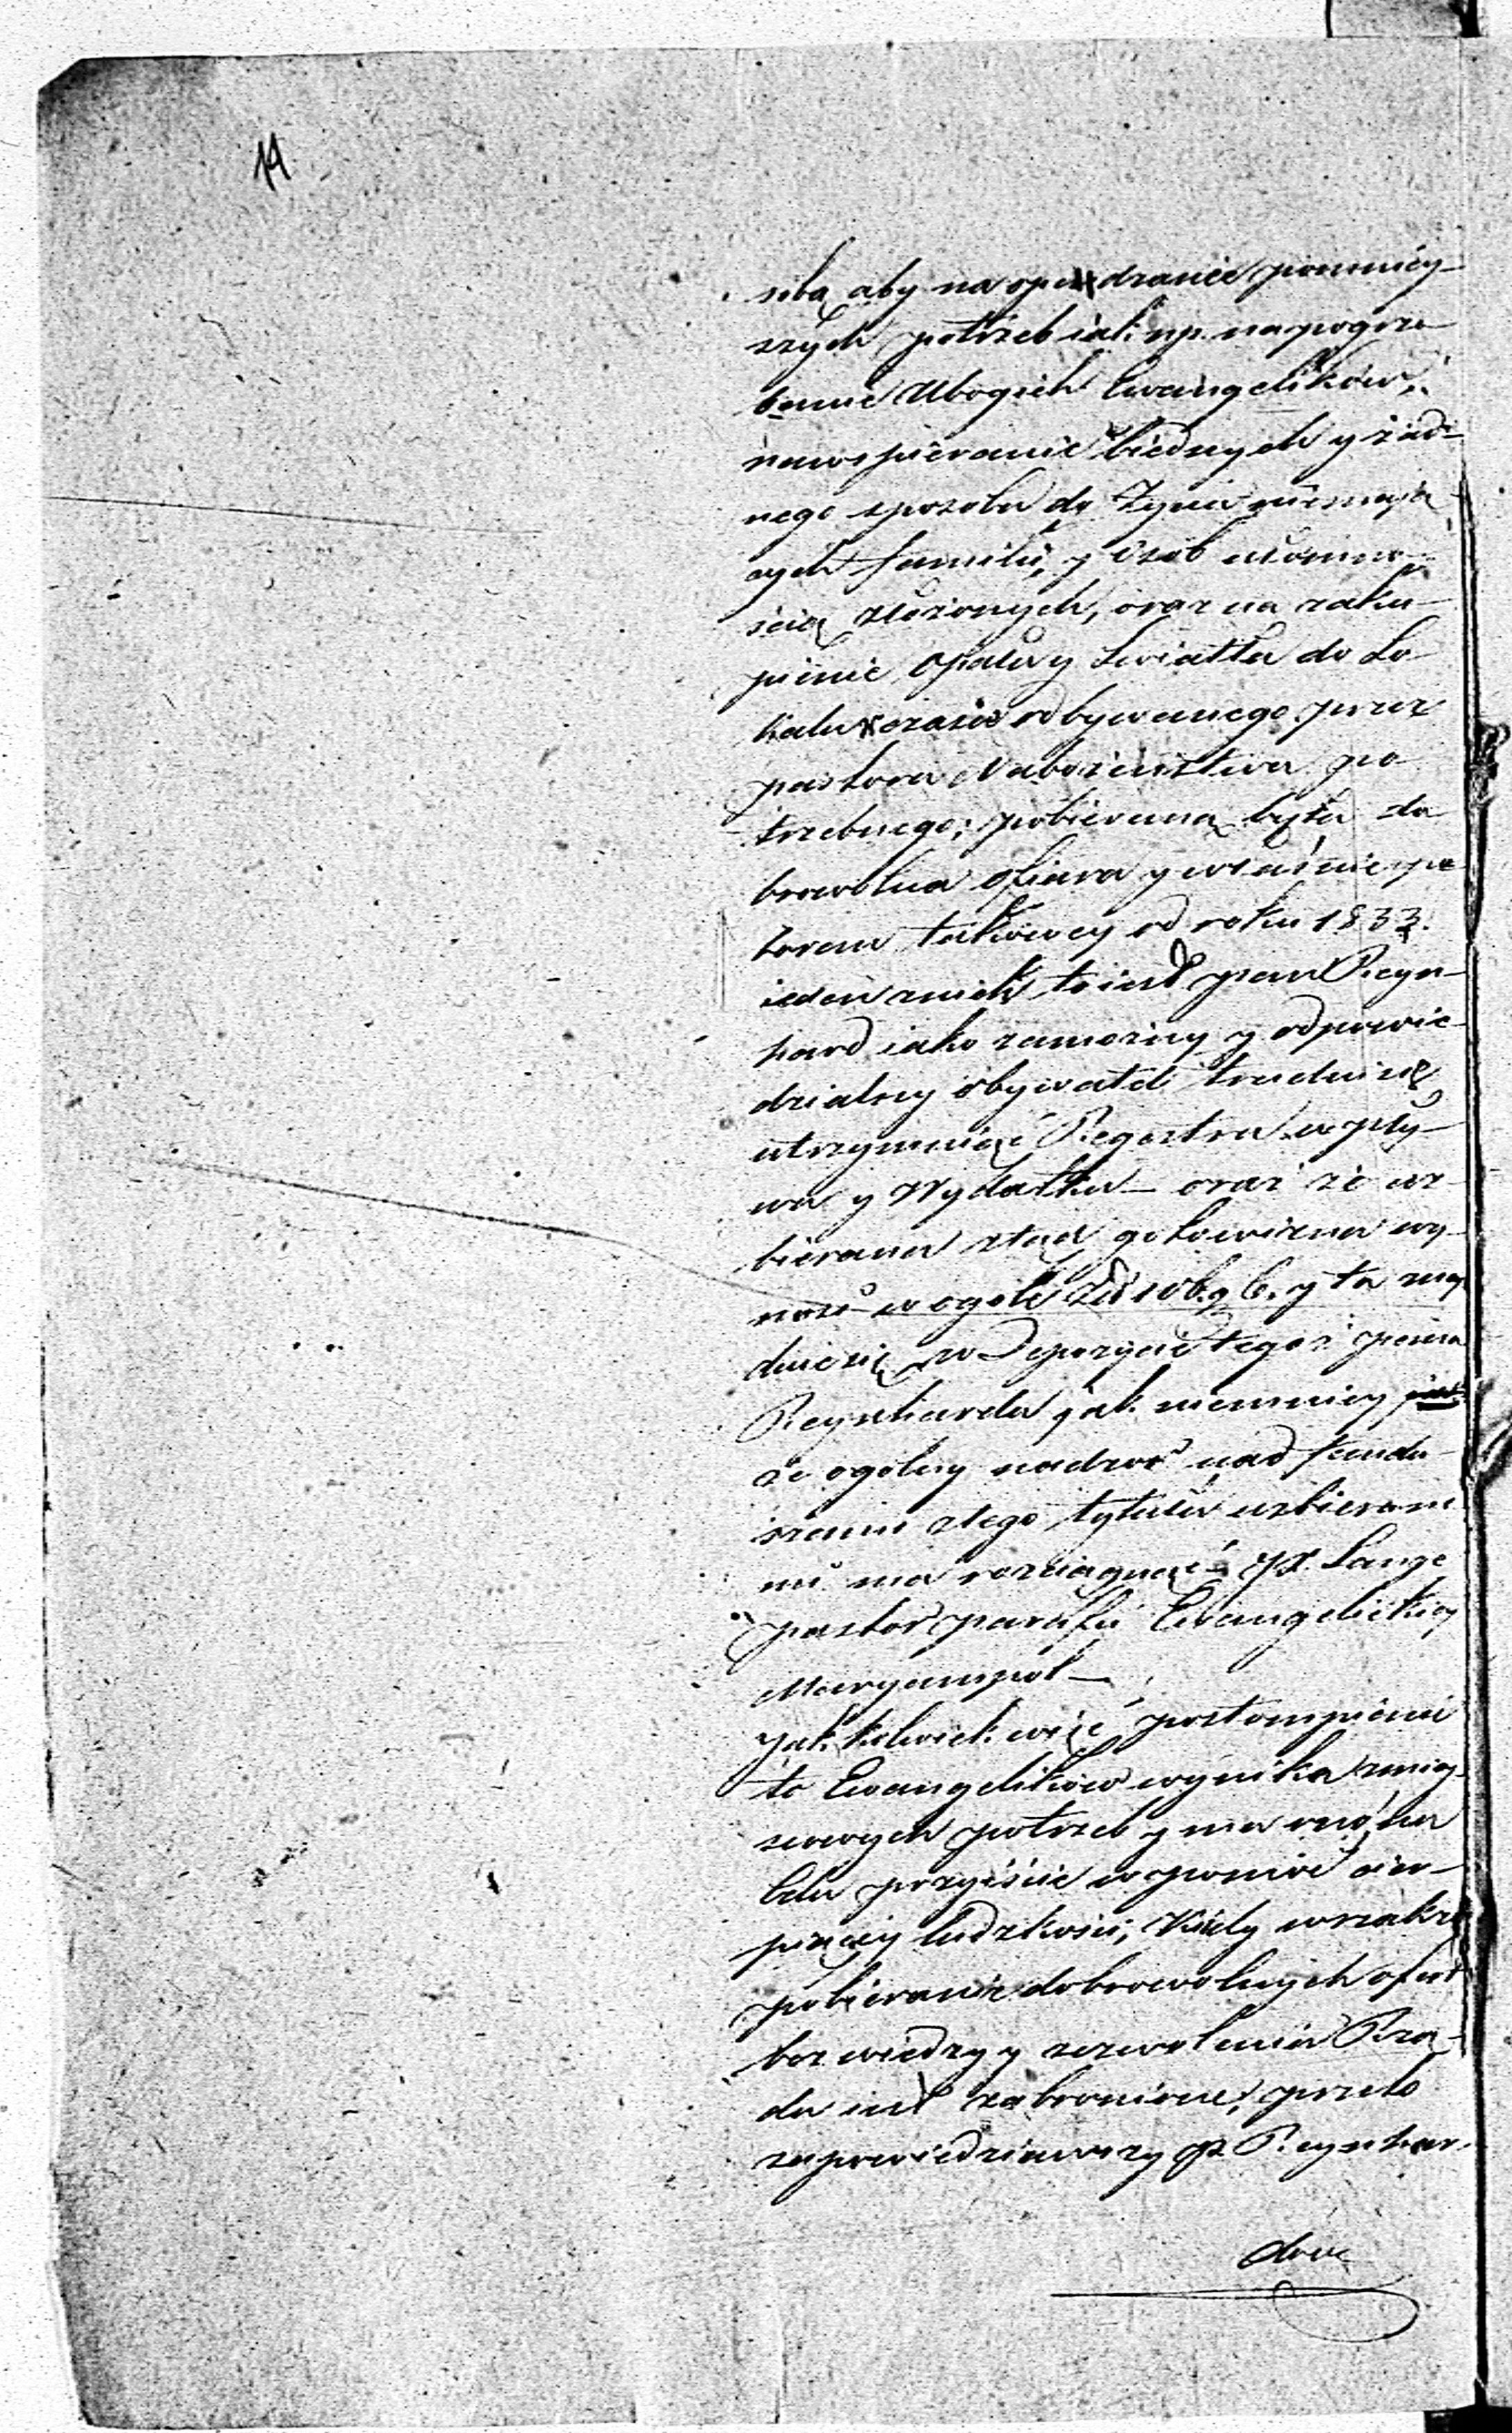 14
sobą aby na opędzanie pomniey-
szych potrzeb iak np. na pogrze-
banie Ubogich Ewangelików,
na wspieranie biednych y żad-
nego sposobu do Życia niemają
cych familii, y osób ułomno-
ścią złożonych, oraz na zaku-
pienie Opału y Swiatła do Lo-
kalu w czasie odbywanego przez
pastora Nabożeństwa po
trzebnego; pobierana była do
browolna ofiara y właśnie po
borem takowey od roku 1833.
ieden z nich to iest pan Reyn-
hard iako zamożny y odpowie-
dzialny obywatel trudni się
utrzymuiąc Regestra wpły-
wu y Wydatku – oraz że uz-
bierana ztąd gotowizna wy-
nosi w ogóle Złł 106 g 6. y ta znay
duie się w Depozycie tegoż pana
Reynharda jak niemniey
że ogólny nadzór nad fundu-
szami z tego tytułu uzbierane
mi ma rozciągnąć JX. Lange
pastor parafii Ewangelickiey
Maryampol –
Jakkolwiek więc postompienie
to Ewangelików wynika z miey
scowych potrzeb y ma ono na
Celu przyiście w pomoc cier-
piącey ludzkości; Kiedy wszakże
pobieranie dobrowolnych ofiar
bez wiedzy y zezwolenia Rzą-
du iest zabronione, przeto
zapowiedziawszy P. Reynhar-
dowi